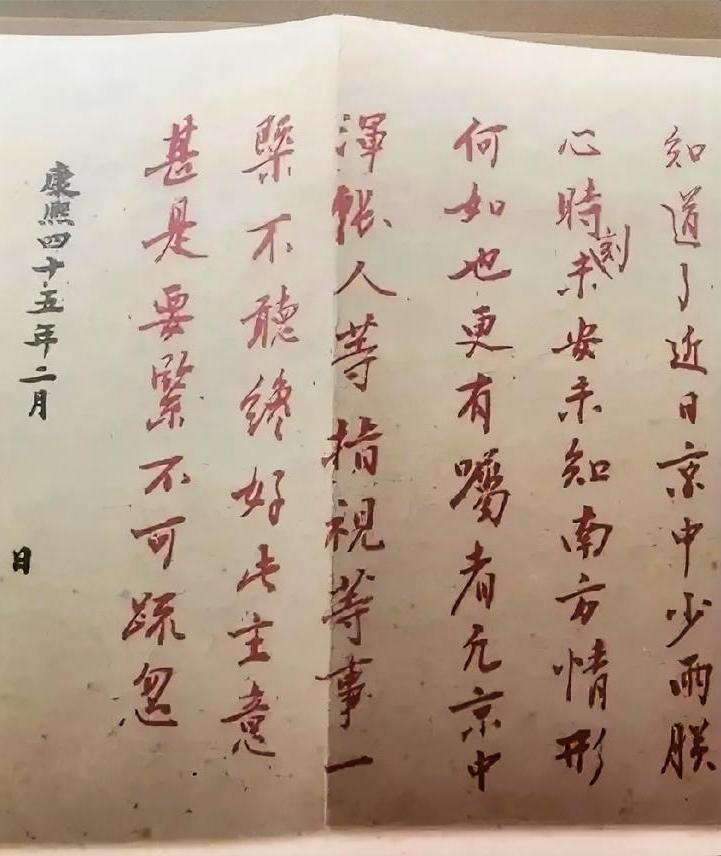 知道了近日京中少雨朕
心時刻未安未知南方情形
何如也更有囑者凡京中
渾賬人等指視等事一
槩不聽纔好此主意
甚是要緊不可疏忽
康熙四十五年二月
日